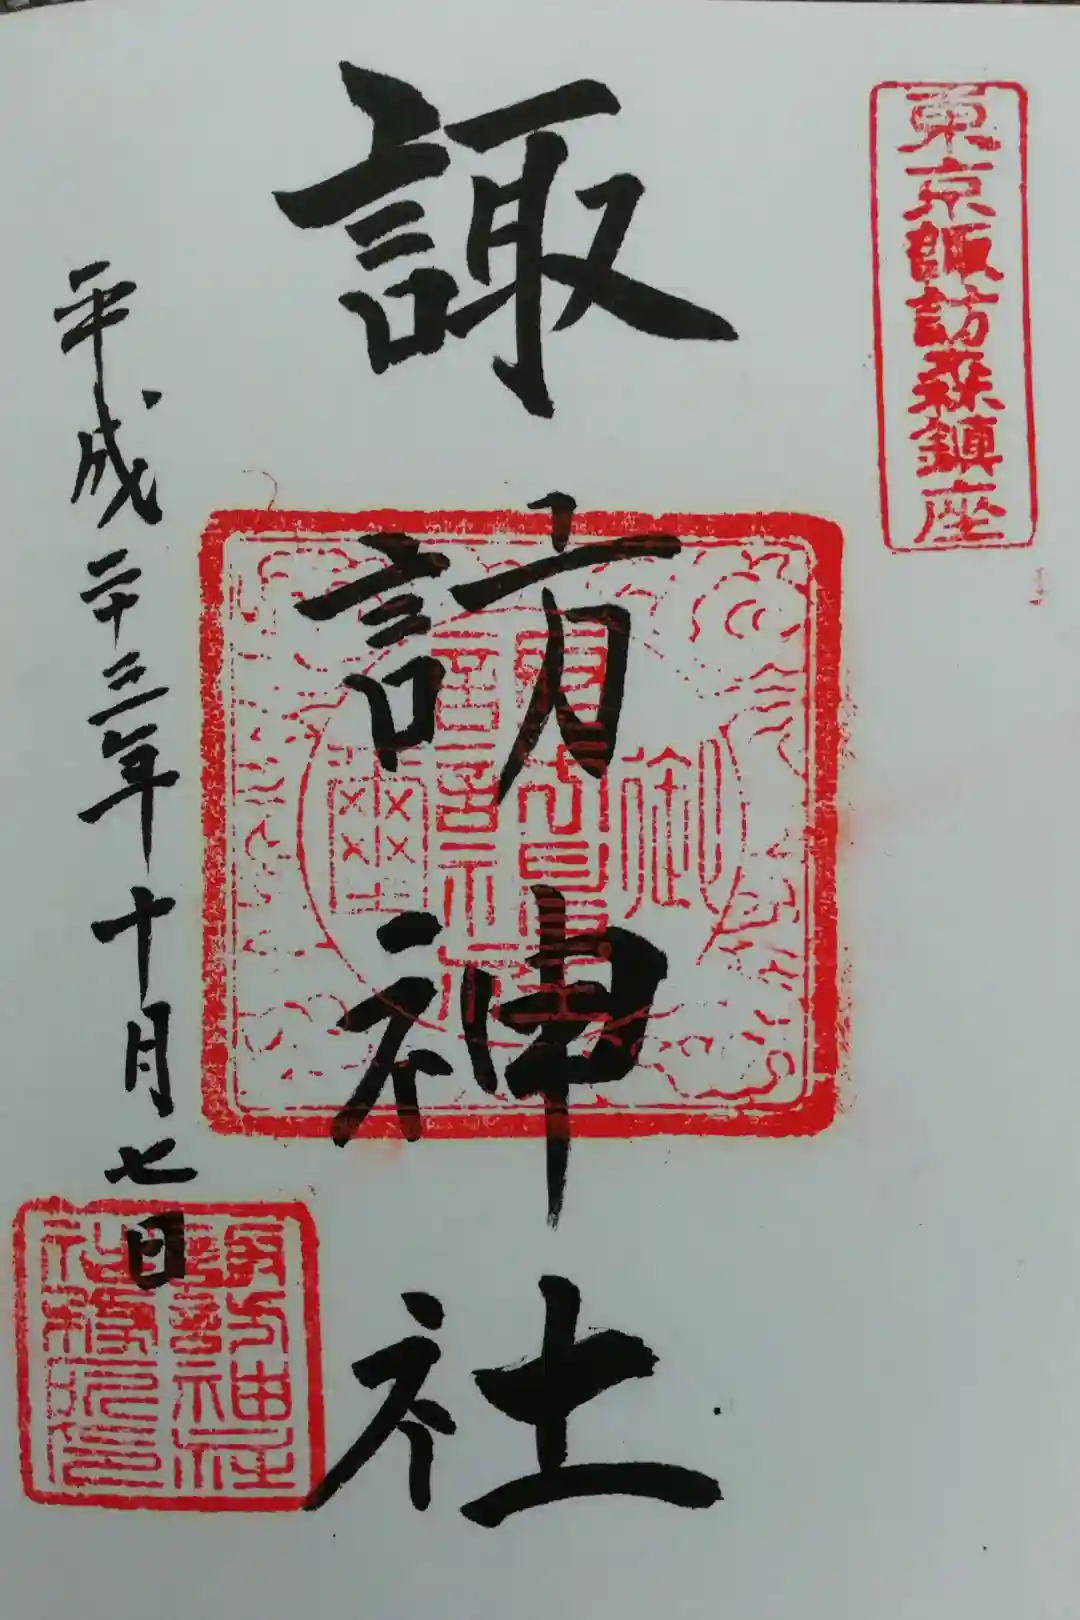 東京諏訪森鎮座
諏訪神社
平成二十三年十月七日
諏訪神社
社務所印